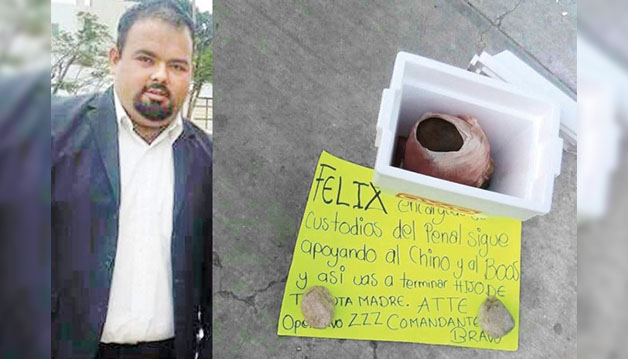 FELIX encargado de
Custodios del Penal sigue
apoyando al Chino y al Boos
y asi vas a terminar HIJO DE
MADRE. ATTE
ZZZ COMANDANTE
BRAVO